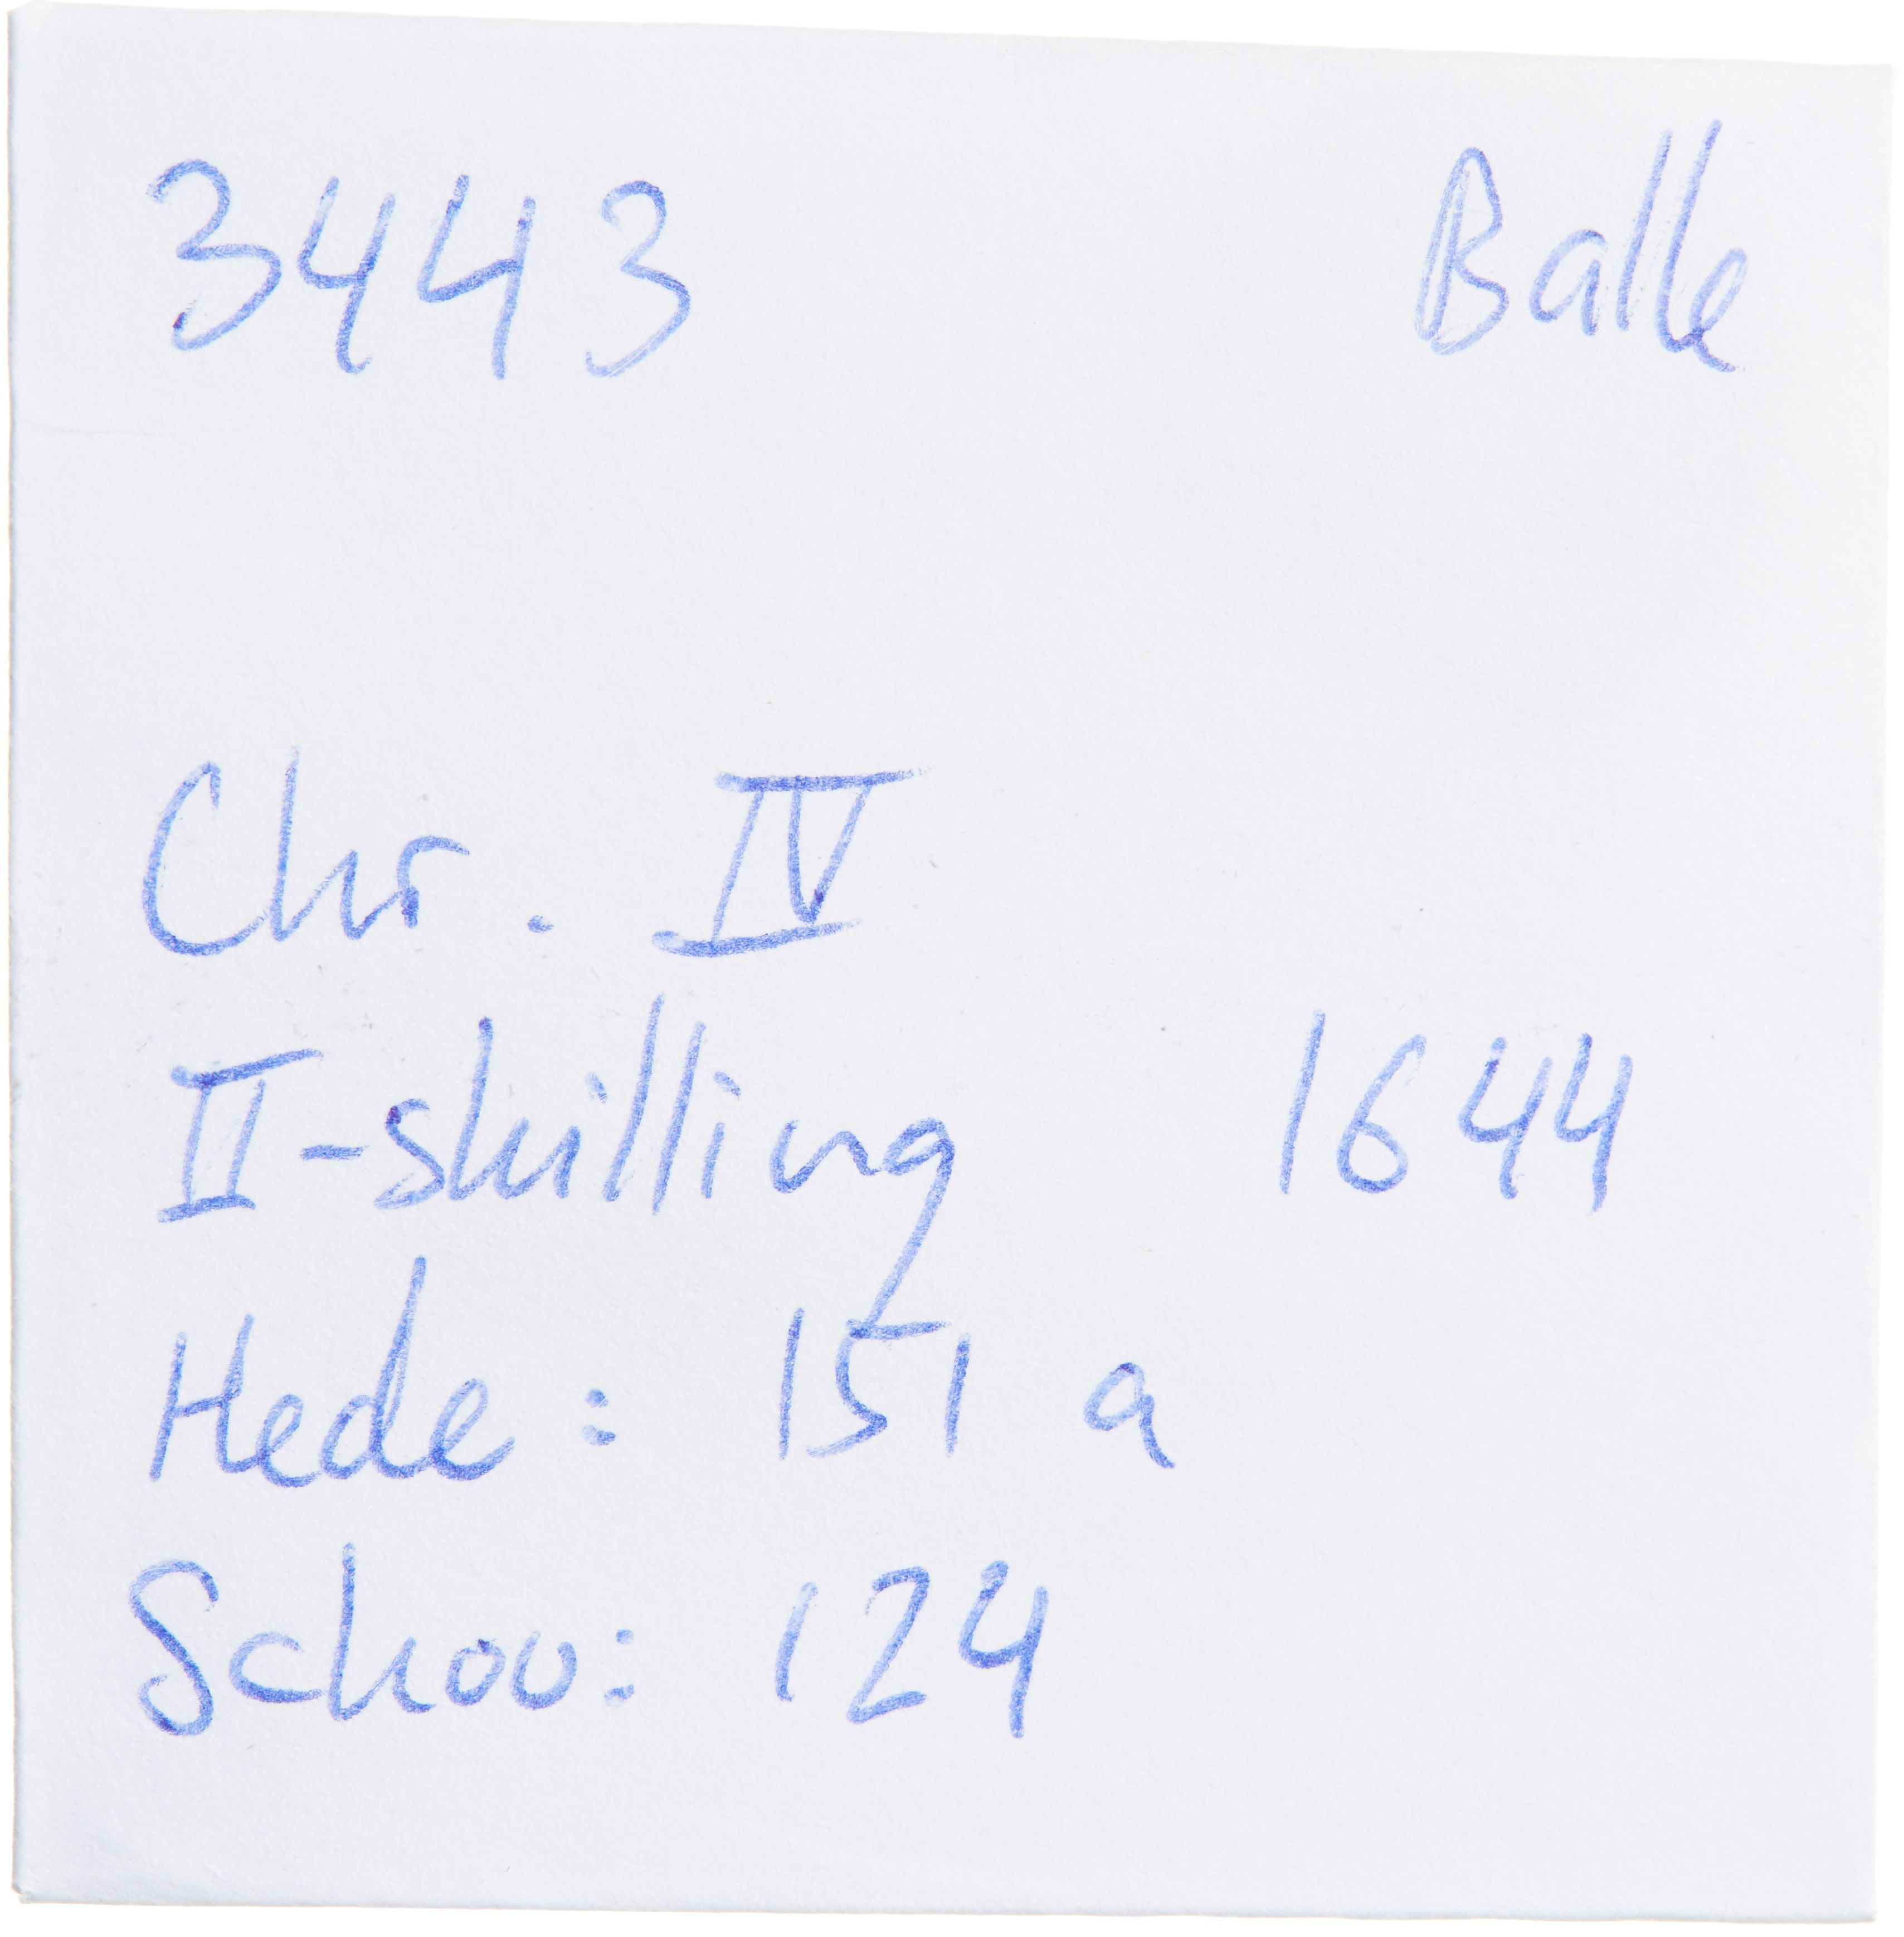 3443 Balle
Chr. IV
II-skilling 1644
Hede: 151 a
Schou: 124